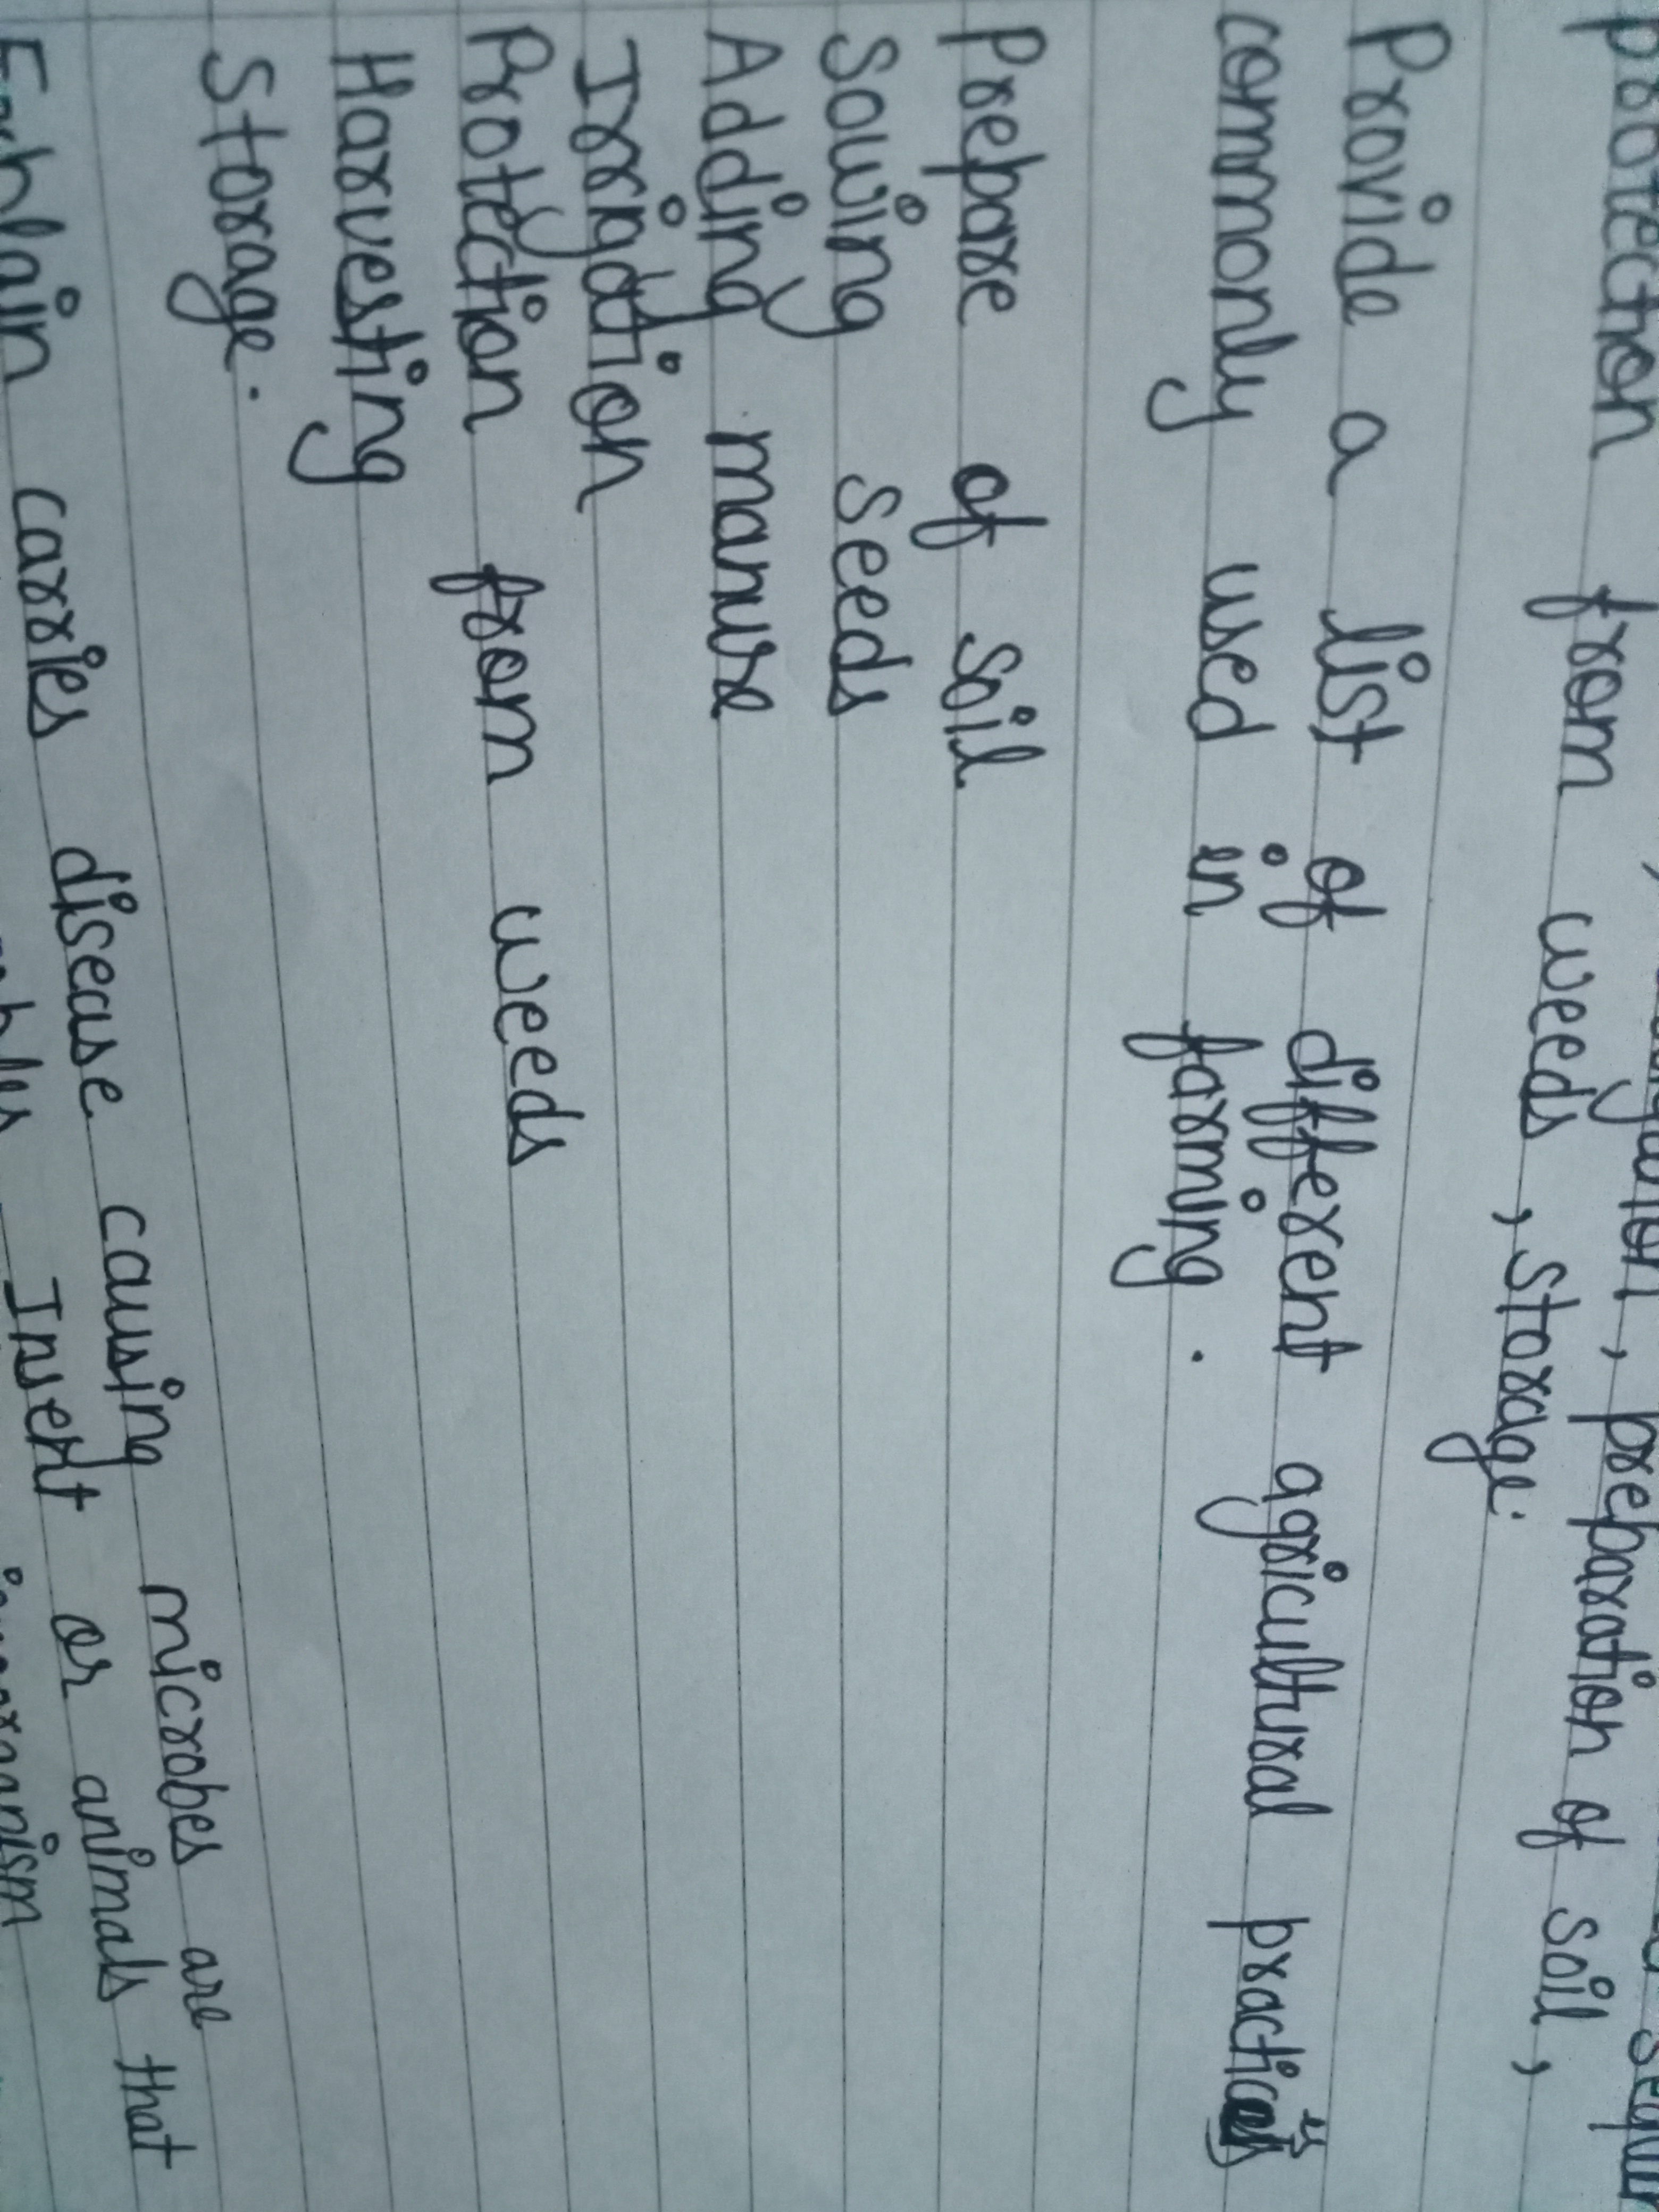 preparation of soil,
protection from weeds, Storage.
Provide a list of different agricultural practices
commonly used in farming.
Prepare of soil
Sowing seeds
Adding manure
Irrigation
Protection from weeds
Harvesting
Storage.
carries disease causing microbes are
Insert or animals that